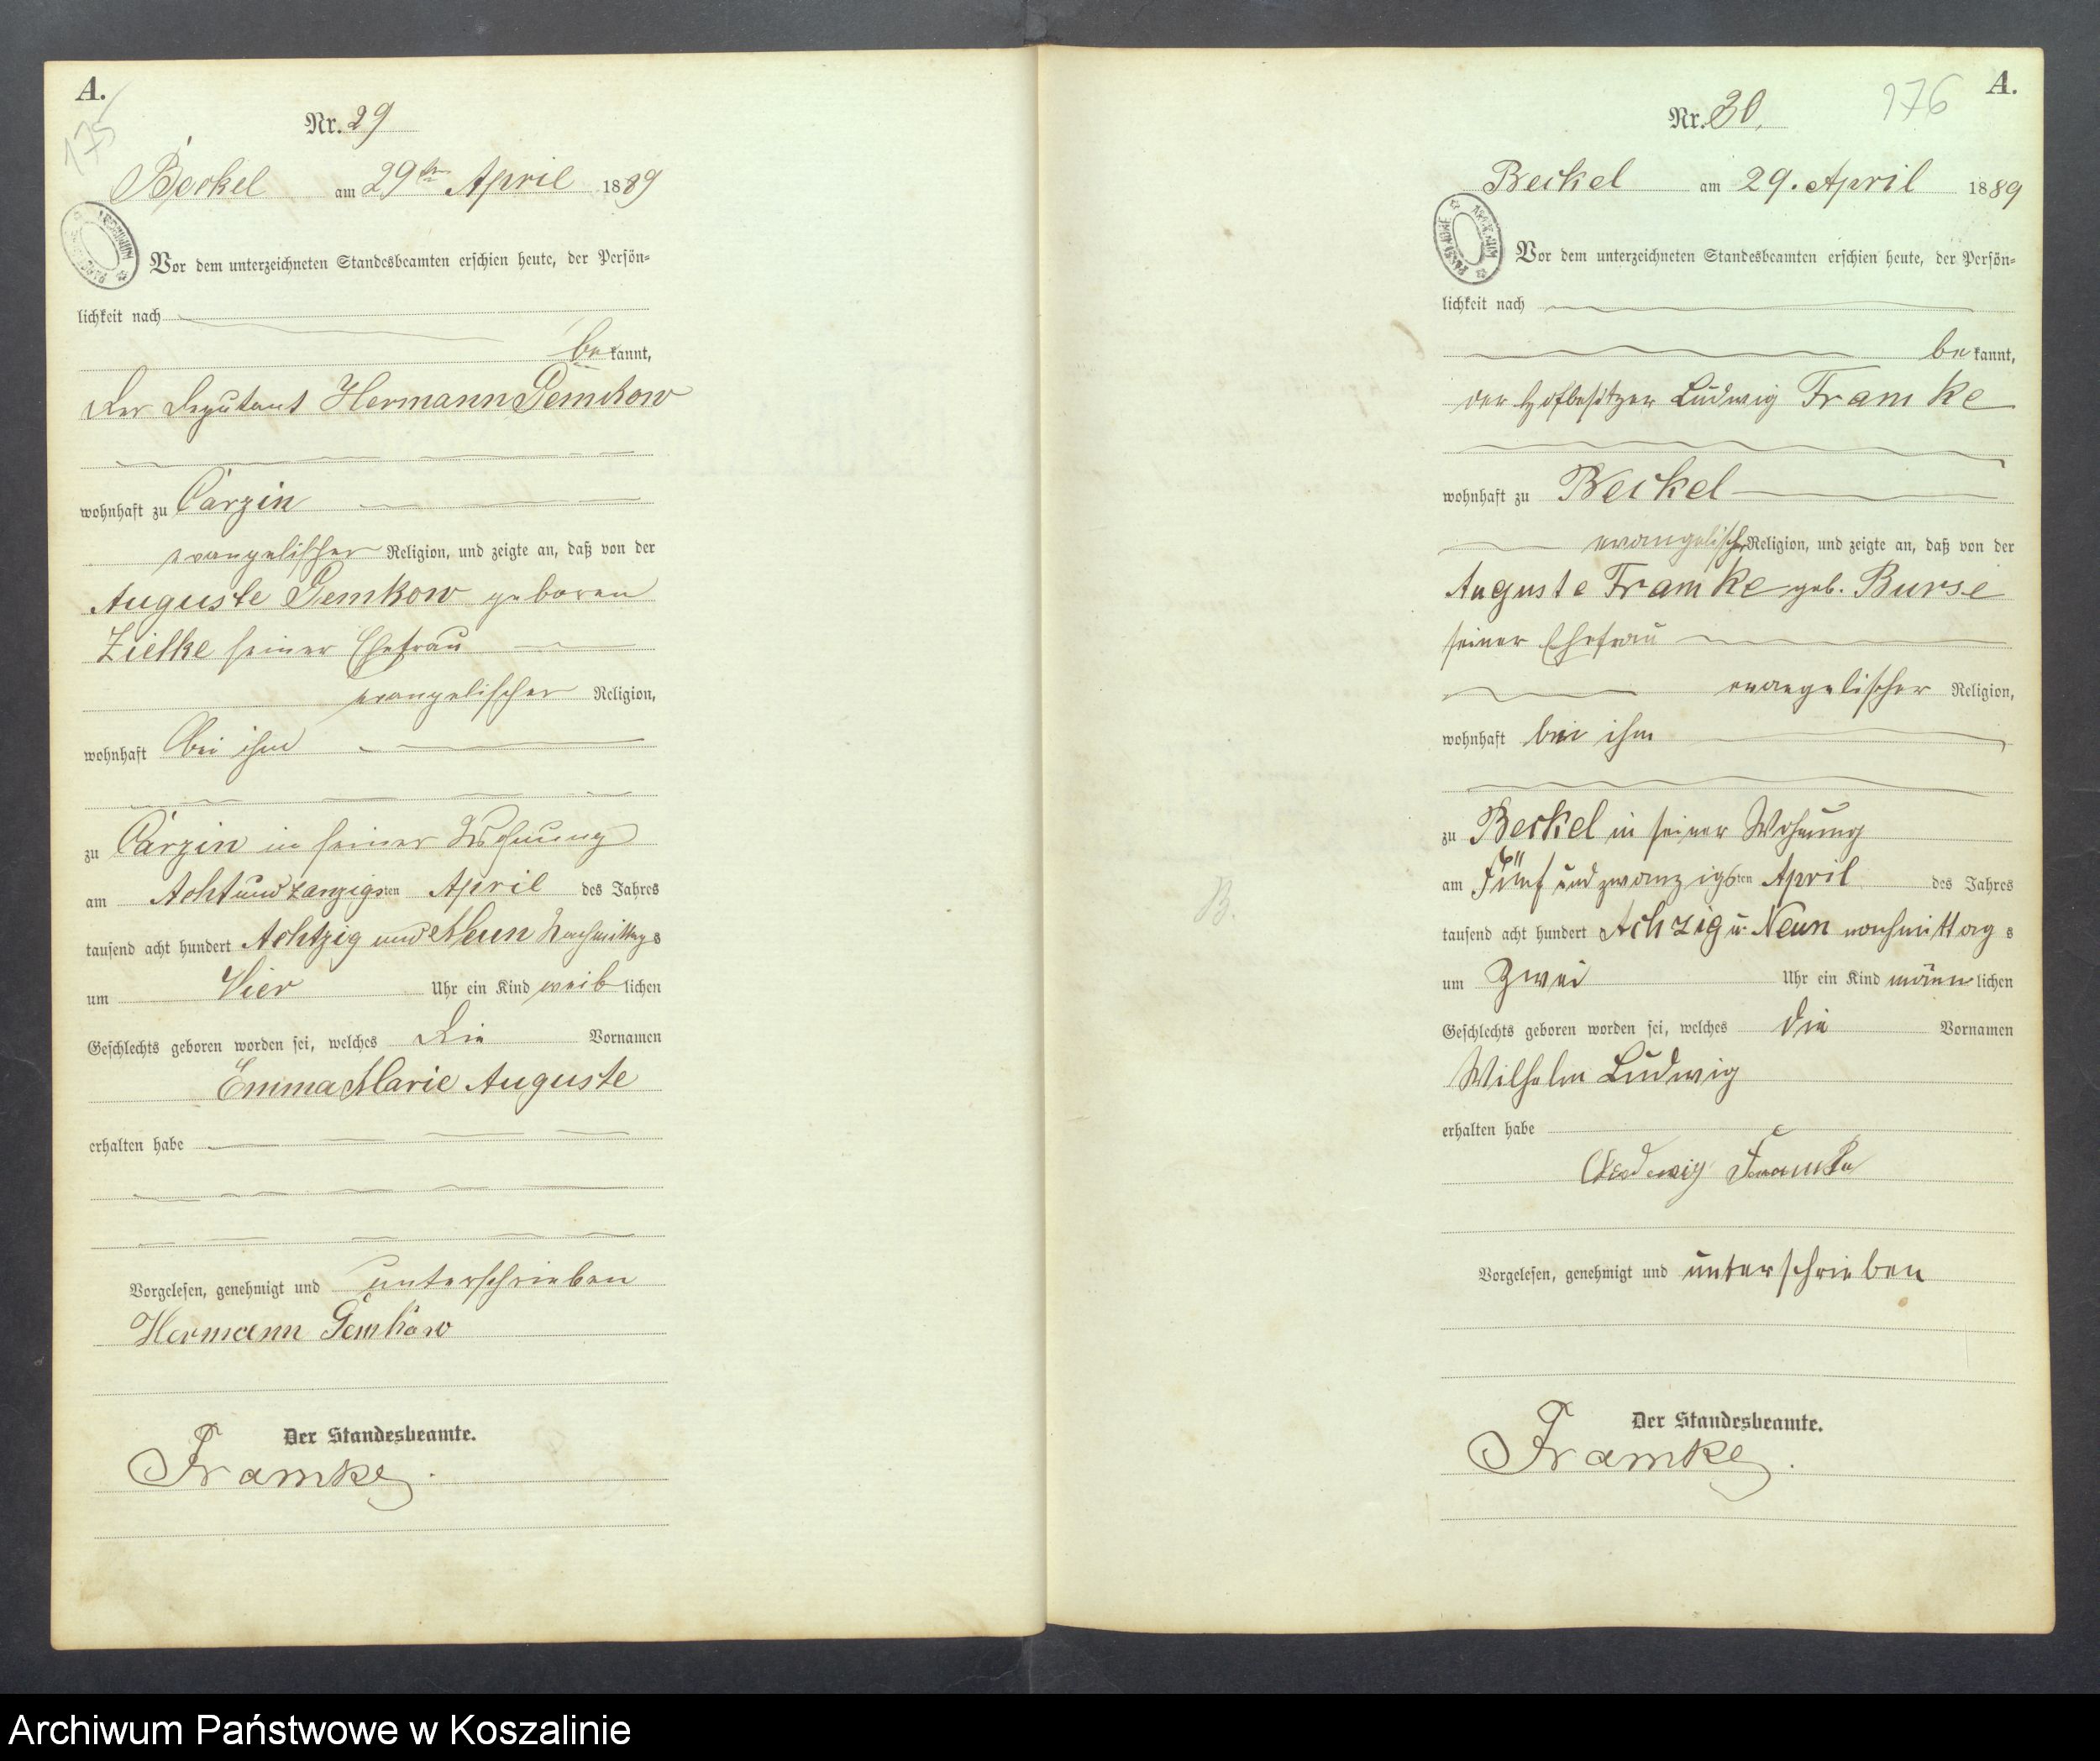 A.
175
Nr. 29
Beckel am 29ten April 1889
Vor dem unterzeichneten Standesbeamten erschien heute, der Persön-
lichkeit nach
bekannt,
Der Deputant Hermann Gemkow
wohnhaft zu Carzin
evangelischer Religion, und zeigte an, daß von der
Auguste Gemkow geboren
Zielke seiner Ehefrau
evangelischer Religion,
wohnhaft bei ihm
zu Carzin in seiner Wohnung
am Achtundzanzigsten April des Jahres
tausend acht hundert Achtzig und Neun Nachmittags
um Vier Uhr ein Kind weiblichen
Geschlechts geboren worden sei, welches Die Vornamen
Emma Marie Auguste
erhalten habe
Vorgelesen, genehmigt und unterschrieben
Hermann Gemkow
Der Standesbeamte.
Framke.
A.
176
Nr. 30.
Beckel am 29. April 1889
Vor dem unterzeichneten Standesbeamten erschien heute, der Persön-
lichkeit nach
bekannt,
der Hofbesitzer Ludwig Framke
wohnhaft zu Beckel
evangelischer Religion, und zeigte an, daß von der
Auguste Framke geb. Burse
seiner Ehefrau
evangelischer Religion,
wohnhaft bei ihm
zu Beckel in seiner Wohnung
am Fünf und zwanzigsten April des Jahres
tausend acht hundert Achzig u. Neun nachmittags
um Zwei Uhr ein Kind männlichen
Geschlechts geboren worden sei, welches die Vornamen
Wilhelm Ludwig
erhalten habe
Ludwig Framke
Vorgelesen, genehmigt und unterschrieben
Der Standesbeamte.
Framke.
B.
Archiwum Państwowe w Koszalinie